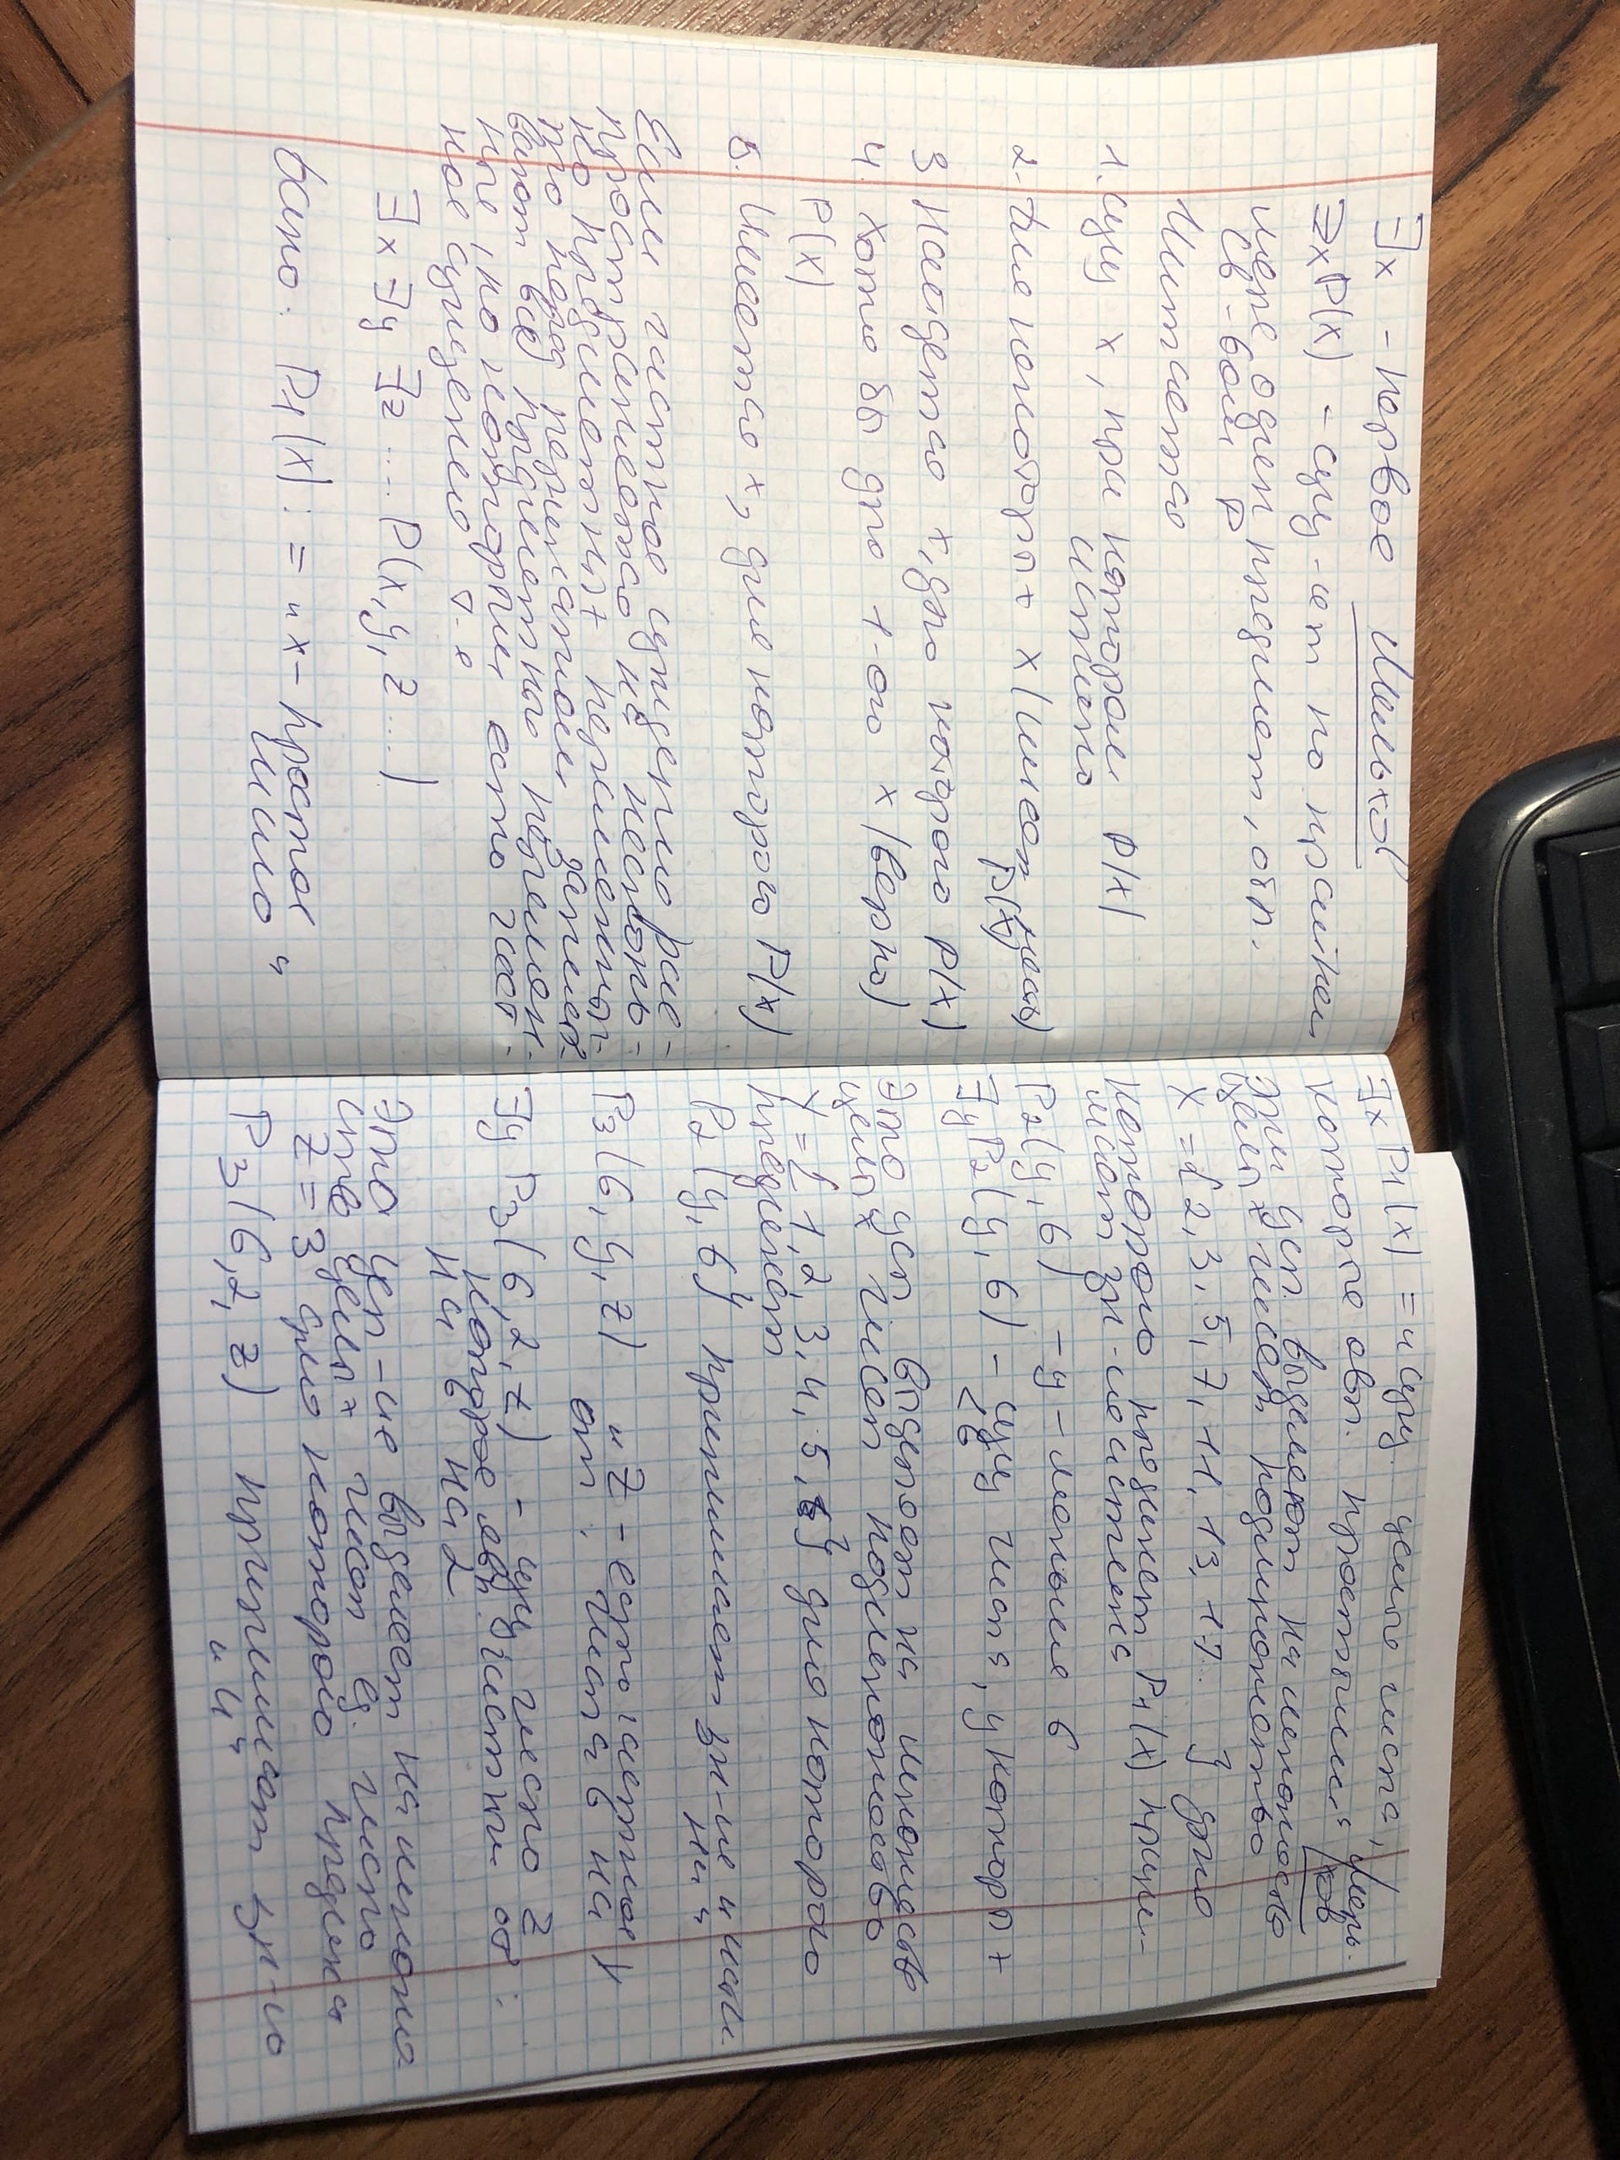 ∃x - первое Мальков
∃xP(x) - сущ-ет по крайней
мере один предмет, обл.
св-вом P
Читается
1. сущ x, при котором P(x)
истино
2. Для некоторых x (имеет место)
P(x)
3 Найдется x, для которого P(x)
4. Хотя бы для 1-ого x (верно)
P(x)
5. Имеется x, для которого P(x)
Если частное суждение рас-
пространяется на несколь-
ко предметных переменных
то перед предикатом записы-
вают все предметные перемен-
ные, по которым есть част-
ное суждение т.е
∃x ∃y ∃z .... P(x, y, z ...)
P1(x): = "x - простое
число"
∃x P1(x) = "сущ. целые числа,
которые явл. простыми" Маль-
ков
эти усл. выделяют на множестве
целых чисел подмножество
X = {2, 3, 5, 7, 11, 13, 17... } для
которого предикат P1(x) прини-
мает зн-ие истина
P2(y, 6) - y - меньше 6
∃y P2(y, 6) - сущ числа, у которых
<6
Это усл. выделяет на множестве
целых чисел подмножество
Y = { 1, 2, 3, 4, 5, } для которого
предикат
P2(y, 6) принимает зн-ие "исти
на"
P3(6, y, z) "z - есть частное
от : числа 6 на y
∃y P3(6, 2, z) - сущ число z
которое явл. частным от :
на 6 на 2
Это усл-ие выделяет на множе
стве целых чисел ед. число
z = 3 для которого предикат
P3(6, 2, z) принимает зн-ие
"И"